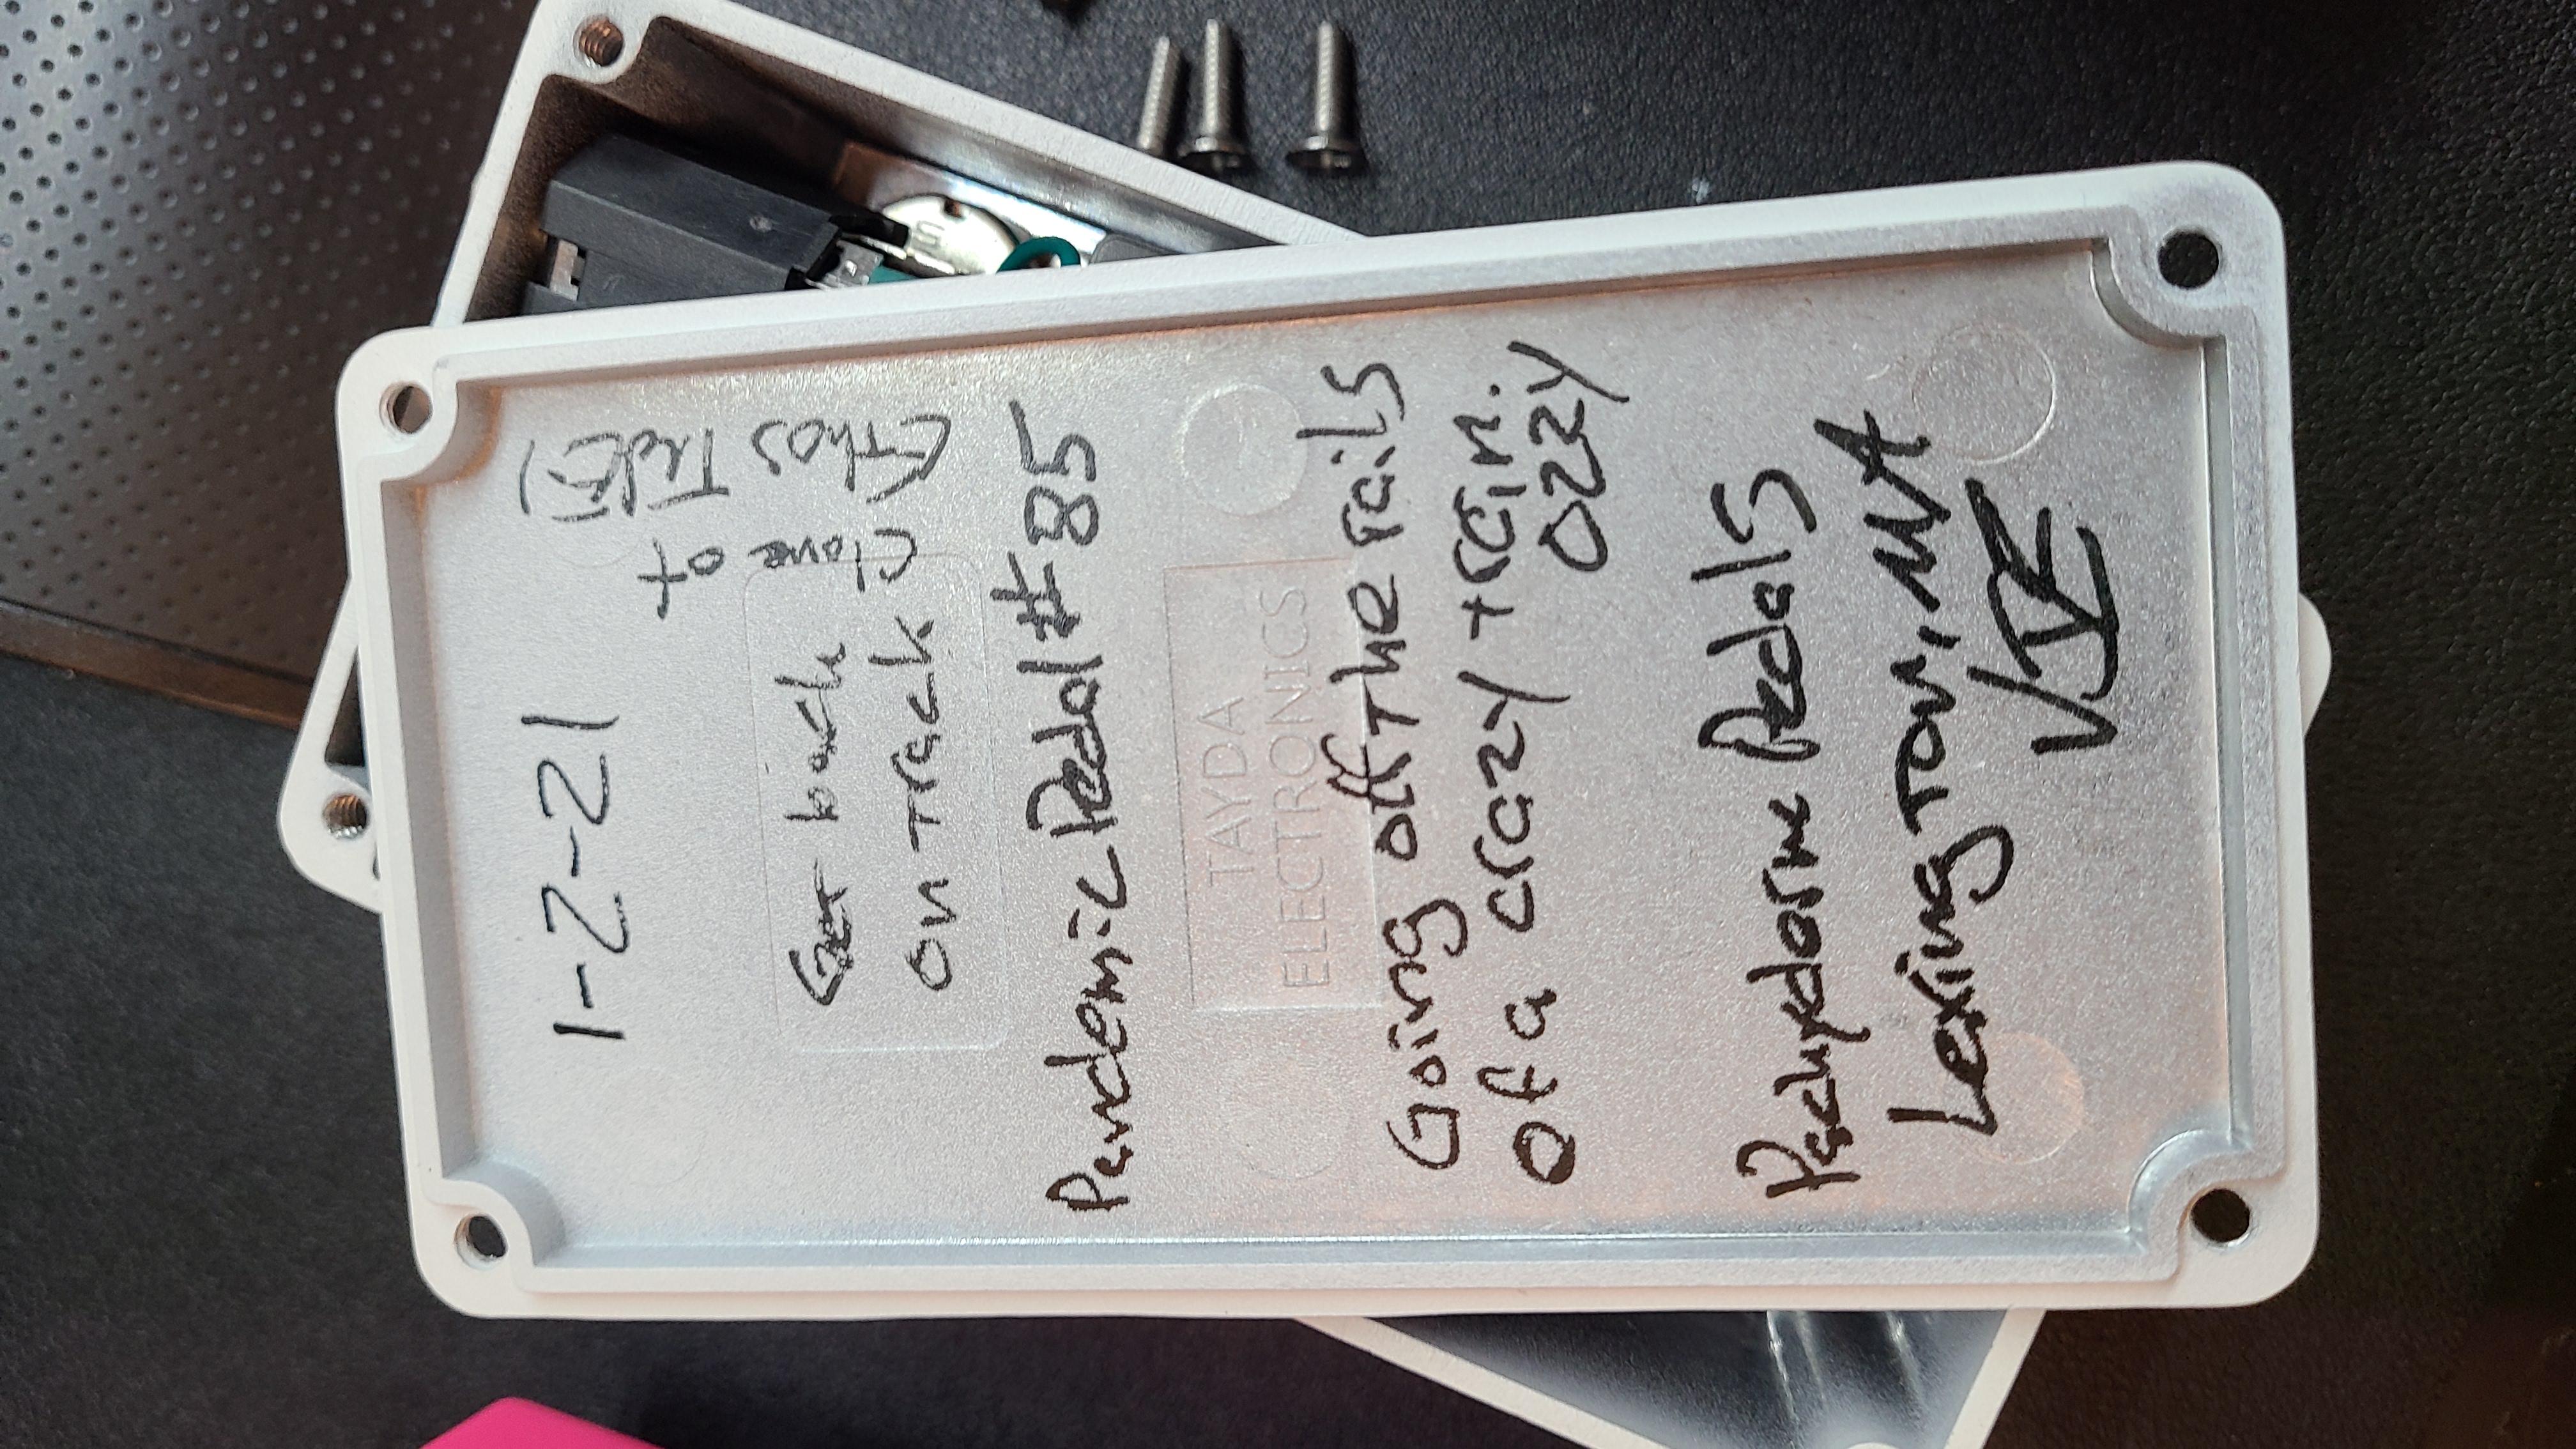 1-2-21
Get back
on track
Clone of
Ethos TWE-1
Pandemic Pedal #85
TAYDA
ELECTRONICS
Going off the rails
of a crazy train.
OZZY
Pachyderm Pedals
Lexington, MA
VJE